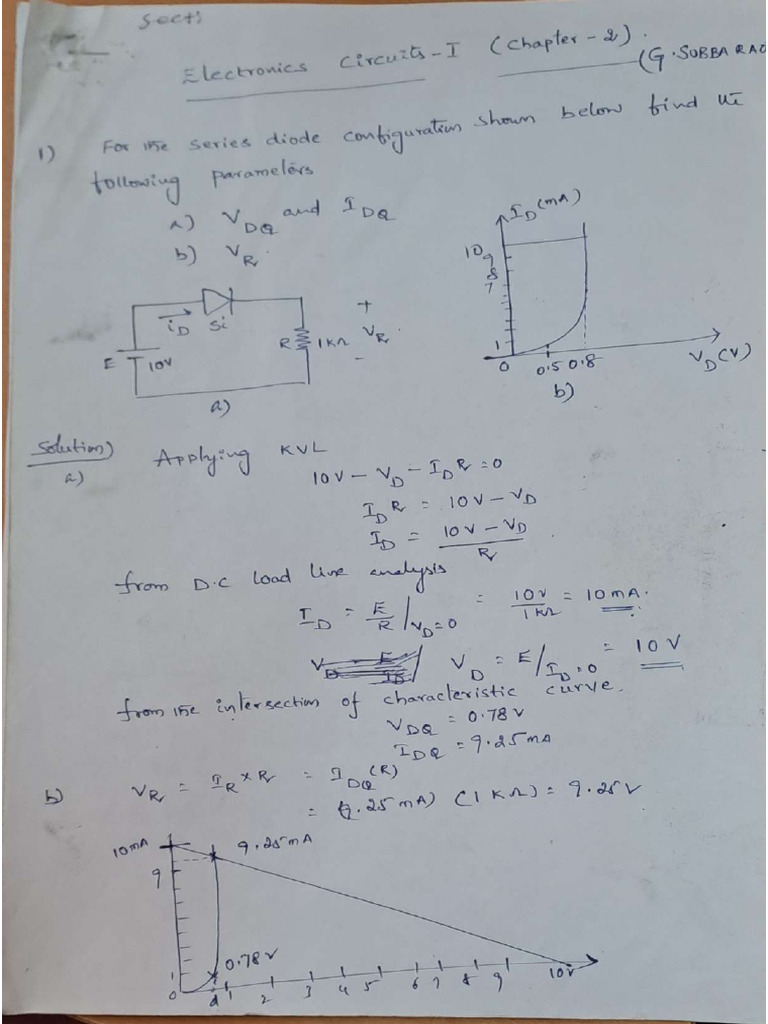 Secti
Electronics Circuits-I (Chapter-2).
(G.SUBBA RAO
1) For the series diode configuration shown below find the
following parameters
a) VDQ and IDQ
b) VR.
ID(mA)
10
9
8
7
1
0 0.5 0.8
VD(V)
b)
iD Si
E 10V
R 1KΩ
+
VR
-
a)
Solution)
a) Applying KVL
10V - VD - IDR = 0
IDR = 10V - VD
ID = 10V - VD / R
from D.C load line analysis
ID = E/R |VD=0 = 10V/1KΩ = 10mA.
VD = E/ID=0 = 10V
from the intersection of characteristic curve.
VDQ = 0.78V
IDQ = 9.25mA
b) VR = IR x R = IDQ(R)
= (9.25mA) (1KΩ) = 9.25V
10mA
9.25mA
9
1
0.78V
0 1 2 3 4 5 6 7 8 9 10V